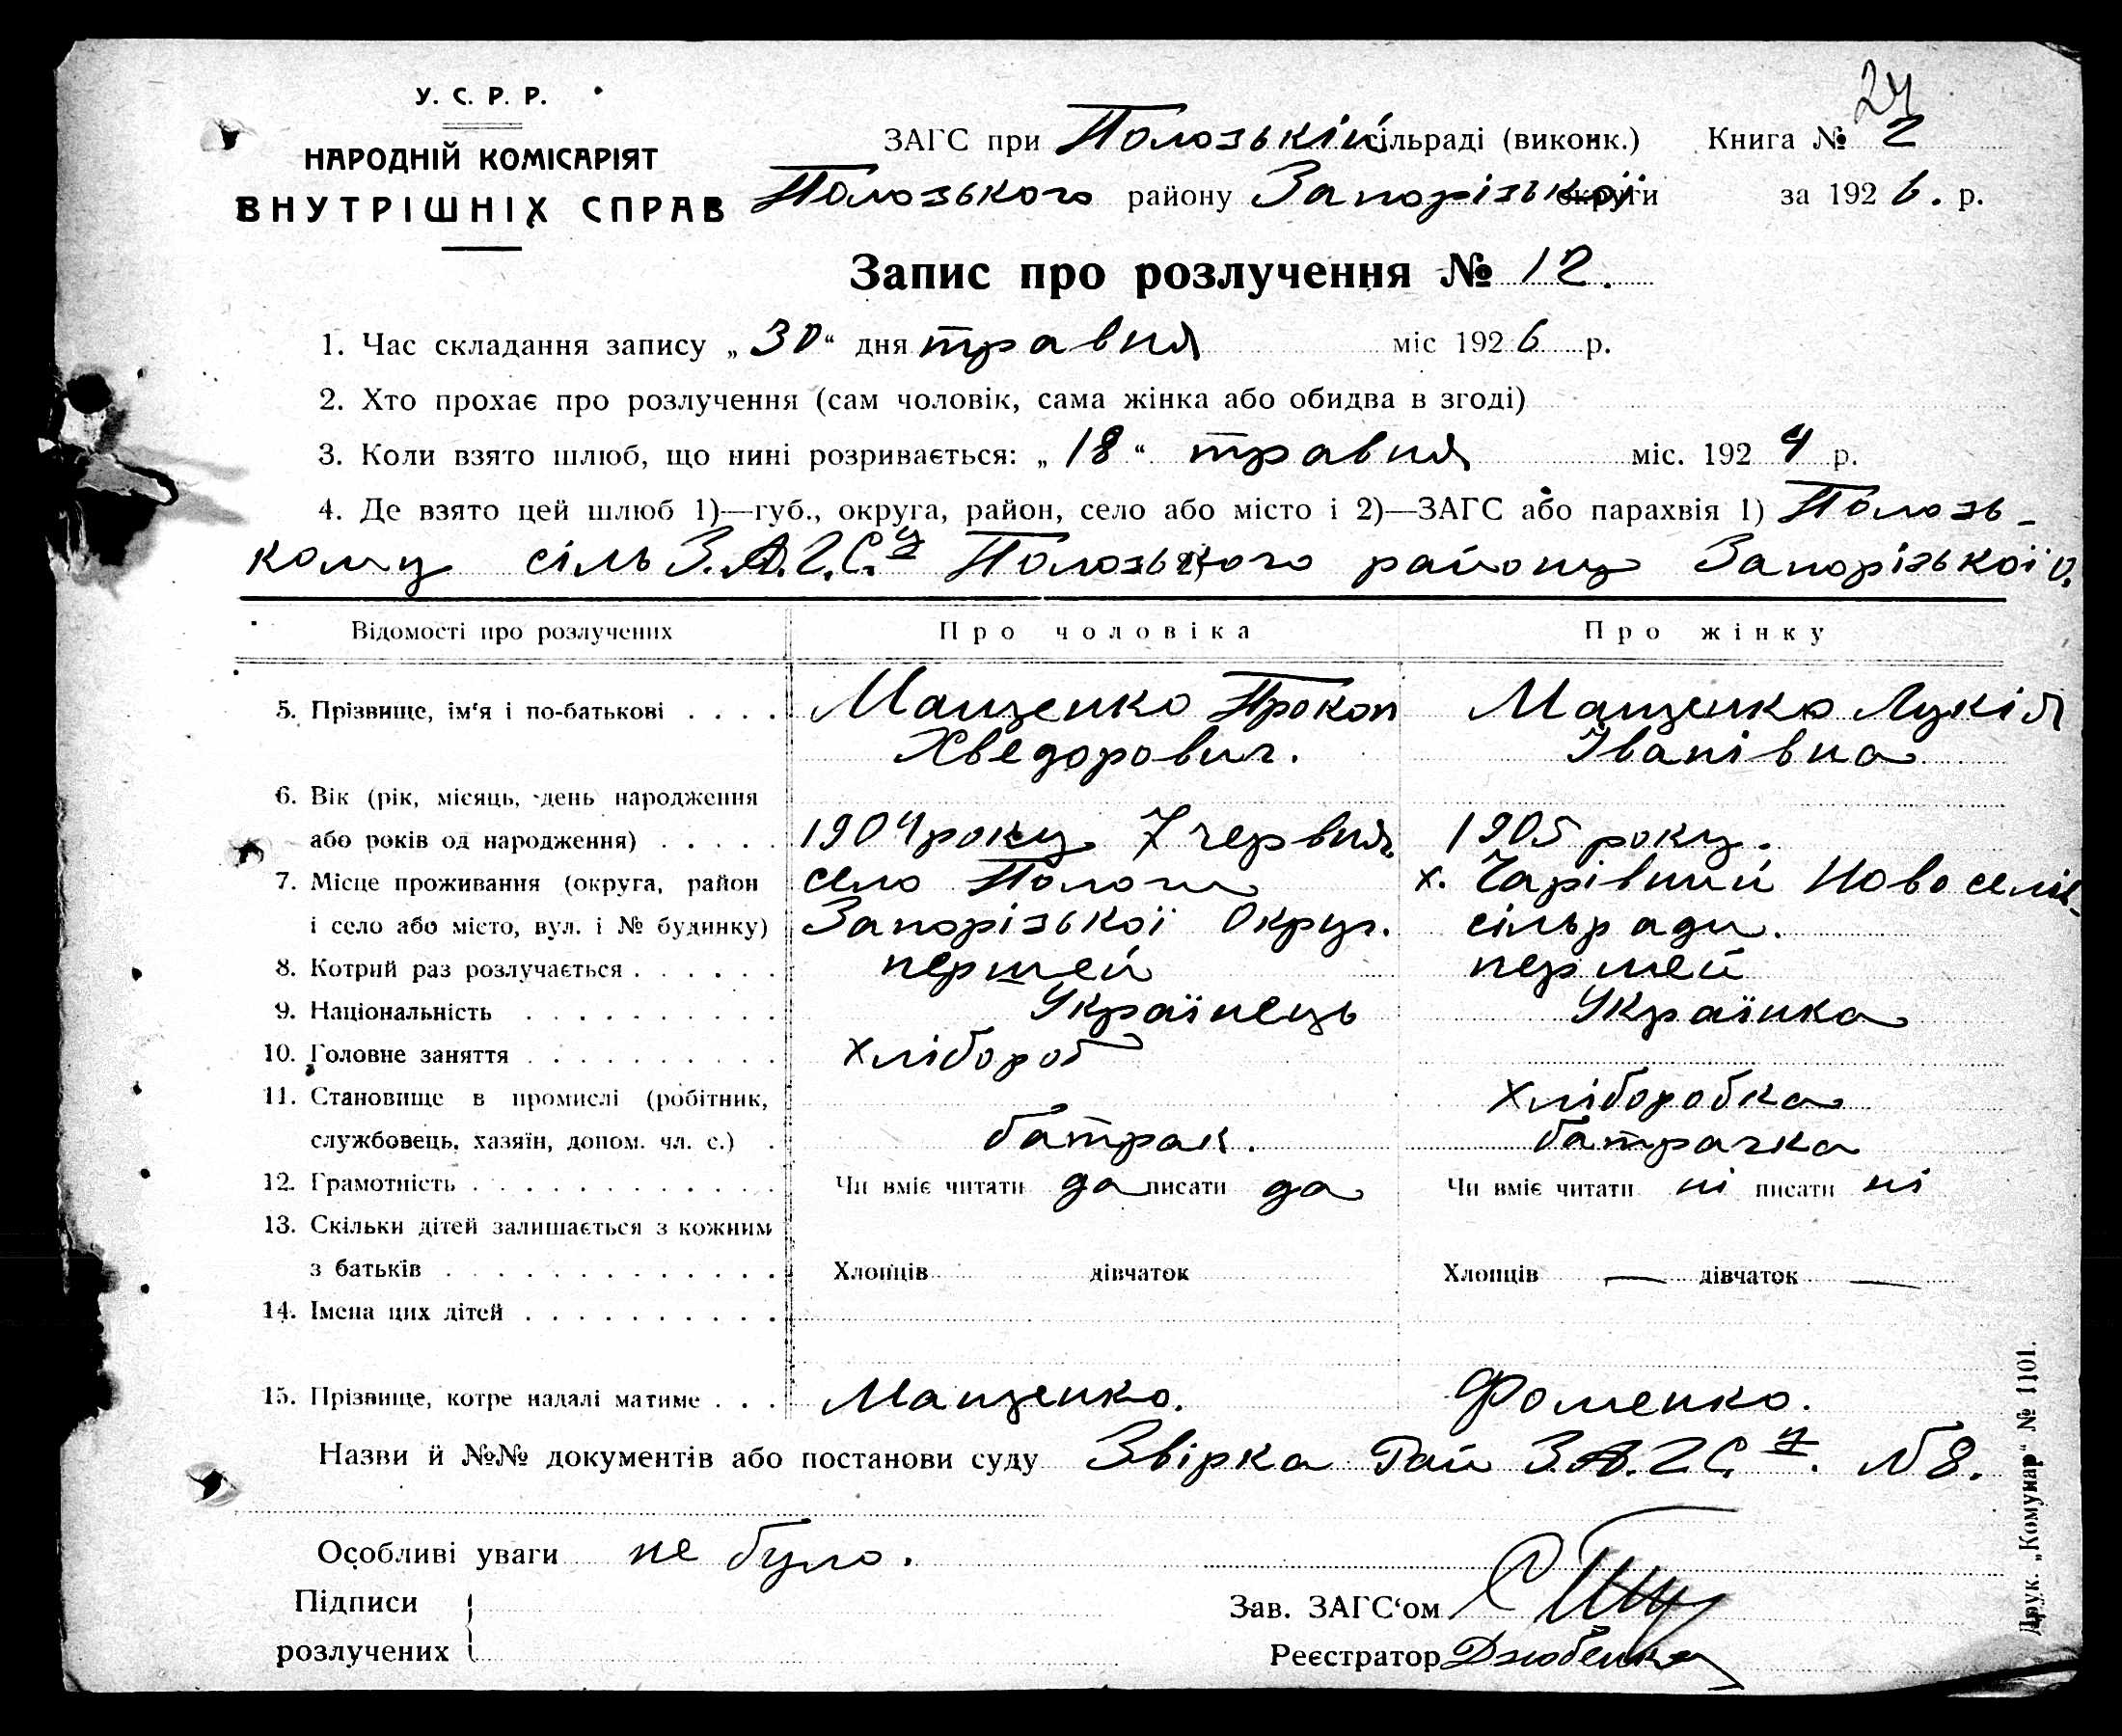 24
У. С. Р. Р.
НАРОДНІЙ КОМІСАРІЯТ
ВНУТРІШНІХ СПРАВ
ЗАГС при Полозькій сільраді (виконк.) Книга № 2
Полозького району Запорізької округи за 1926. р.
Запис про розлучення № 12.
1. Час складання запису „30“ дня травня міс 1926 р.
2. Хто прохає про розлучення (сам чоловік, сама жінка або обидва в згоді)
3. Коли взято шлюб, що нині розривається: „18“ травня міс. 1924 р.
4. Де взято цей шлюб 1)—губ., округа, район, село або місто і 2)—ЗАГС або парахвія 1) Полозь-
кому сіль З.А.Г.С.у Полозького району Запорізької о.
Відомості про розлучених Про чоловіка Про жінку
5. Прізвище, ім'я і по-батькові . . . . Мащенко Прокоп Мащенко Лукія
Хведорович. Іванівна
6. Вік (рік, місяць, день народження
або років од народження) . . . . . 1904 року 7 червня. 1905 року.
7. Місце проживання (округа, район село Пологи х. Чарівний Новоселів-
і село або місто, вул. і № будинку) Запорізької Округ. сільради.
8. Котрий раз розлучається . . . . . . першей першей
9. Національність . . . . . . . . . . Українець Українка
10. Головне заняття . . . . . . . . . . хлібороб
11. Становище в промислі (робітник, хліборобка
службовець, хазяїн, допом. чл. с.) . батрак. батрачка
12. Грамотність . . . . . . . . . . . . . Чи вміє читати да писати да Чи вміє читати ні писати ні
13. Скільки дітей залишається з кожним
з батьків . . . . . . . . . . . . . . Хлопців дівчаток Хлопців — дівчаток —
14. Імена цих дітей . . . . . . . . . .
15. Прізвище, котре надалі матиме . . . Мащенко. Фоменко.
Назви й №№ документів або постанови суду Звірка Рай З.А.Г.С.у. № 8.
Особливі уваги не було.
Підписи Зав. ЗАГС'ом
розлучених Реєстратор Дзюбенко
Друк. „Комунар“ № 1101.